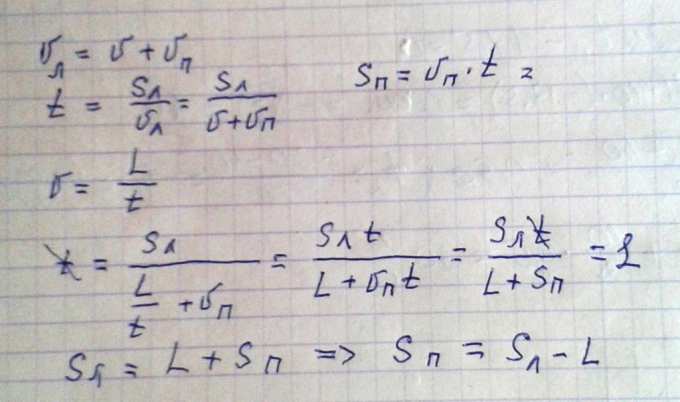 υл = υ + υп
t = Sл/υл = Sл/(υ+υп)
Sп = υп · t =
υ = L/t
t = Sл/(L/t + υп) = Sл t/(L + υп t) = Sл t/(L + Sп) = 1
Sл = L + Sп => Sп = Sл - L